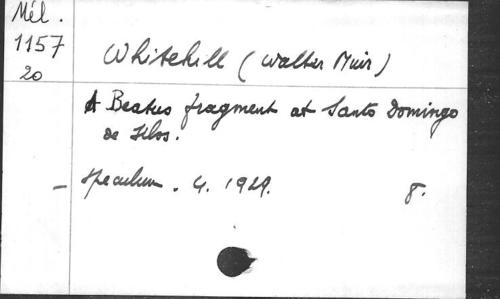 Mél.
1157
20
Whitehill (Walter Muir)
A Beatus fragment at Santo Domingo
de Silos.
– Speculum. 4. 1929. 8.